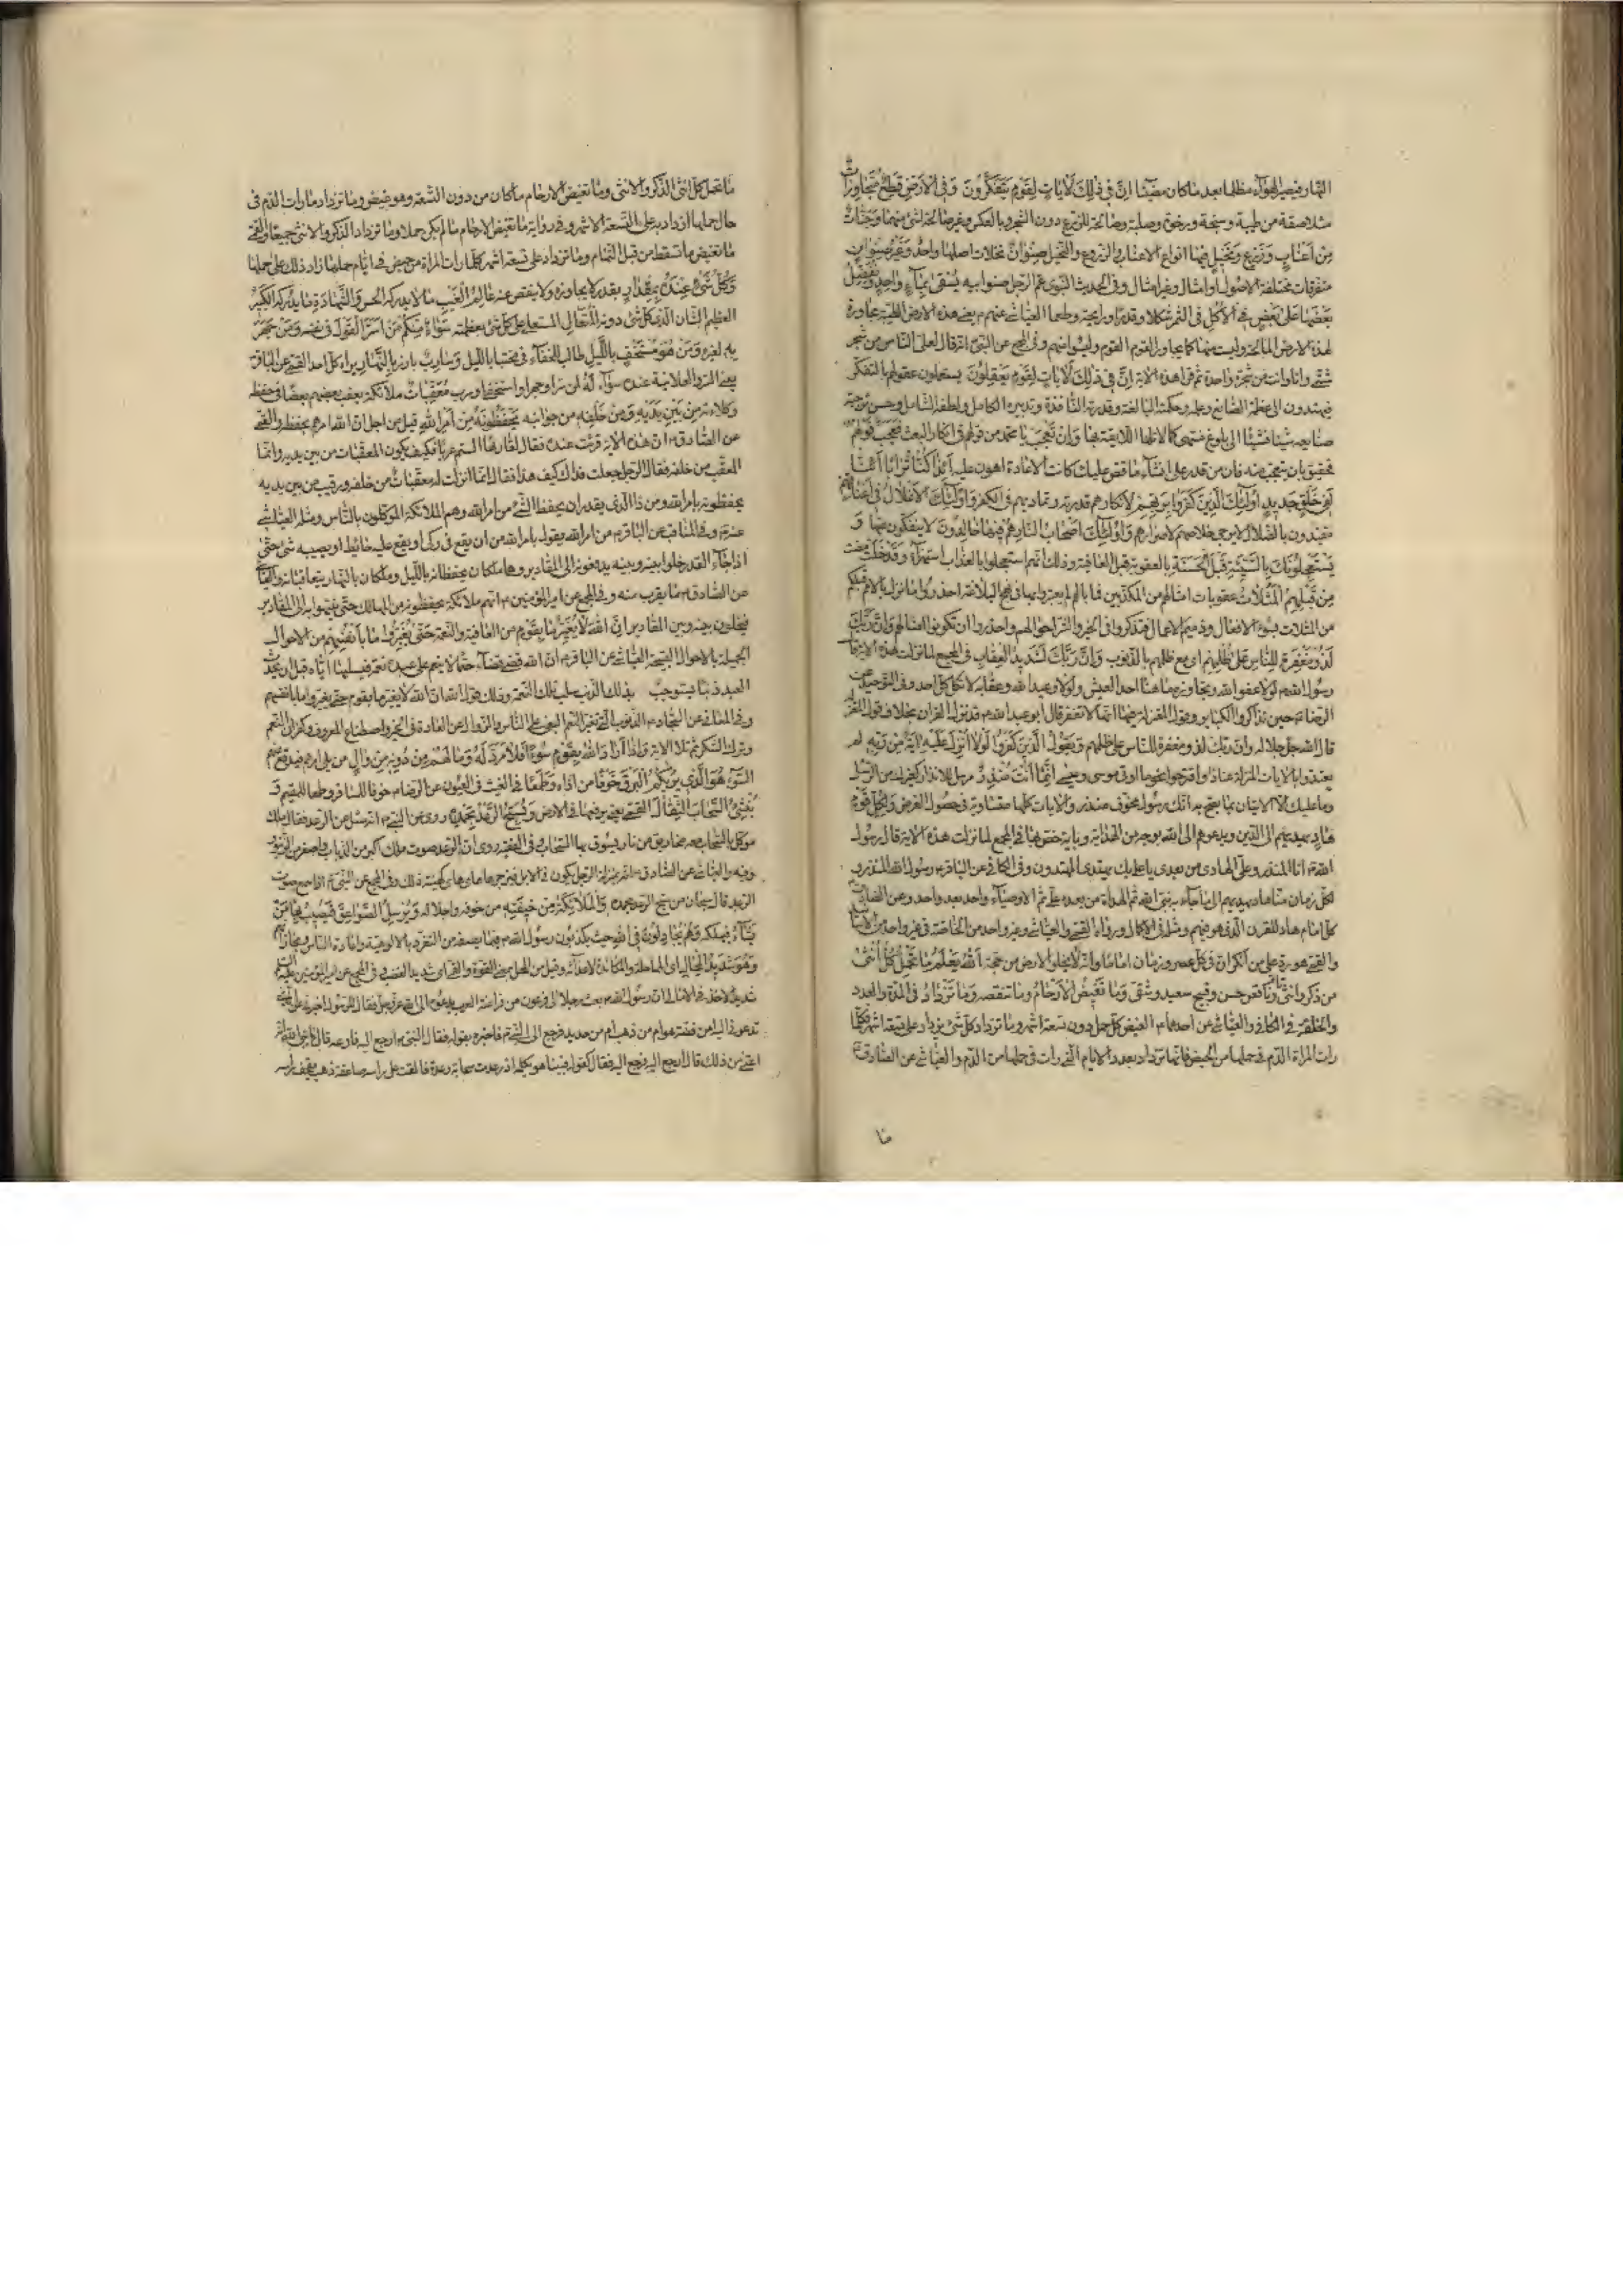 النهار فيصير الهواء مظلما بعد ما كان مضيئا اِنَّ فى ذٰلِكَ لَاٰيَاتٍ لِقَوْمٍ يَتَفَكَّرُونَ وَفِى الْاَرْضِ قِطَعٌ مُتَجَاوِرَاتٌ
متلاصقة من طيبة وسبخة ورخوة وصلبة وصالحة للزرع دون الشجر وبالعكس وغير صالحة لشئ منهما وَجَنَّاتٌ
مِنْ اَعْنَابٍ وَزَرْعٌ وَنَخِيلٌ فيها انواع الاعناب والزروع والنخيل صِنْوَانٌ نخلات اصلها واحد وَغَيْرُ صِنْوَانٍ
متفرقات مختلفة الاصول او امثال وغير امثال وفى الحديث النبوى عم الرجل صنو ابيه يُسْقىٰ بِمَاءٍ وَاحِدٍ وَنُفَضِّلُ
بَعْضَهَا عَلىٰ بَعْضٍ فِى الْاُكُلِ فى الثمر شكلا وقدرا ورايحة وطعما العياشى عنهم ع يعنى هذه الارض الطيبة مجاورة
لهذه الارض المالحة وليست منها كما يجاور القوم القوم وليسوا منهم وفى المجمع عن النبى انه قال لعلى الناس من شجر
شتى وانا وانت من شجرة واحدة ثم قرا هذه الاية اِنَّ فى ذٰلِكَ لَاٰيَاتٍ لِقَوْمٍ يَعْقِلُونَ يستعملون عقولهم بالتفكر
فيهتدون الى عظمة الصانع وعلمه وحكمته البالغة وقدرته النافذة وتدبيره الكامل ولطفه الشامل وحسن توجيه
صنايعه شيئا فشيئا الى بلوغ منتهى كمالاتها اللايقة بها وَاِنْ تَعْجَبْ يا محمد من قولهم فى انكار البعث فَعَجَبٌ قَوْلُهُمْ
حقيق بان يتعجب منه فان من قدر على انشاء ما قص عليك كانت الاعادة اهون عليه ءَاِذَا كُنَّا تُرَابًا ءَاِنَّا
لَفى خَلْقٍ جَديدٍ اُولٰئِكَ الَّذينَ كَفَرُوا بِرَبِّهِمْ لانكارهم قدرته وتماديهم فى الكفر وَاُولٰئِكَ الْاَغْلَالُ فى اَعْنَاقِهِمْ
مقيدون بالضلال لا يرجى خلاصهم لاصرارهم وَاُولٰئِكَ اَصْحَابُ النَّارِ هُمْ فيهَا خَالِدُونَ لا ينفكون عنها وَ
يَسْتَعْجِلُونَكَ بِالسَّيِّئَةِ قَبْلَ الْحَسَنَةِ بالعقوبة قبل العافية وذلك انهم استعجلوا بالعذاب استهزاء وَقَدْ خَلَتْ مضت
مِنْ قَبْلِهِمُ الْمَثُلَاتُ عقوبات امثالهم من المكذبين فما بالهم لم يعتبروا بها فى نهج البلاغة احذروا ما نزل بالامم قبلكم
من المثلات بسوء الافعال وذميم الاعمال فتذكروا فى الخير والشر احوالهم واحذروا ان تكونوا امثالهم وَاِنَّ رَبَّكَ
لَذُو مَغْفِرَةٍ لِلنَّاسِ عَلىٰ ظُلْمِهِمْ اى مع ظلمهم بالذنوب وَاِنَّ رَبَّكَ لَشَديدُ الْعِقَابِ فى المجمع لما نزلت هذه الاية قال
رسول الله لولا عفو الله وتجاوزه ما هنا احد العيش ولولا وعيد الله وعقابه لاتكل كل احد وفى التوحيد عن
الرضا حين تذاكروا الكباير وقول المعتزلة فيها انها لا تغفر قال ابو عبد الله ع قد نزل القران بخلاف قول المعتزلة
قال الله جل جلاله وان ربك لذو مغفرة للناس على ظلمهم وَيَقُولُ الَّذينَ كَفَرُوا لَوْلَا اُنْزِلَ عَلَيْهِ اٰيَةٌ مِنْ رَبِّهِ لم
يعتدوا بالايات المنزلة عنادا واقترحوا نحو ما اوتى موسى وعيسى اِنَّمَا اَنْتَ مُنْذِرٌ مرسل للانذار كغيرك من الرسل
وما عليك الا الاتيان بما يصح به انك رسول مخوف منذر والايات كلها متساوية فى حصول الغرض وَلِكُلِّ قَوْمٍ
هَادٍ يهديهم الى الدين ويدعوهم الى الله بوجه من الهداية وباية خص بها فى المجمع لما نزلت هذه الاية قال رسول
الله انا المنذر وعلى الهادى من بعدى يا على بك يهتدى المهتدون وفى الكافى عن الباقر ع رسول الله المنذر و
لكل زمان منا هاد يهديهم الى ما جاء به نبى الله ثم الهداة من بعده على ثم الاوصياء واحد بعد واحد وعن الصادق
كل امام هاد للقرن الذى هو فيهم ومثله فى الاكمال ورواه القمى والعياشى وغير واحد من الخاصة فى غير واحد من الاسانيد
والقمى هو رد على من انكر ان فى كل عصر وزمان اماما وانه لا يخلو الارض من حجة اَللهُ يَعْلَمُ مَا تَحْمِلُ كُلُّ اُنْثىٰ
من ذكر وانثى تام وناقص حسن وقبيح سعيد وشقى وَمَا تَغيضُ الْاَرْحَامُ وما تنقصه وَمَا تَزْدَادُ فى المدة والعدد
والخلقة فى الكافى والعياشى عن احدهما ع الغيض كل حمل دون تسعة اشهر وما تزداد كل شئ يزداد على تسعة اشهر فكلما
رات المراة الدم فى حملها من الحيض فانها تزداد بعدد الايام التى رات فى حملها من الدم والعياشى عن الصادق
ما
ما تحمل كل انثى الذكر والانثى وما تغيض الارحام ما كان من دون التسعة وهو غيض وما تزداد ما رات الدم فى
حال حملها ازداد به على التسعة الاشهر وفى رواية ما تغيض الارحام ما لم يكن حملا وما تزداد الذكر والانثى جميعا والقمى
ما تغيض ما تسقط من قبل التمام وما تزداد على تسعة اشهر كلما رات المراة من حيض فى ايام حملها زاد ذلك على حملها
وَكُلُّ شَىْءٍ عِنْدَهُ بِمِقْدَارٍ بقدر لا يجاوزه ولا ينقص عنه عَالِمُ الْغَيْبِ ما لا يدركه الحس وَالشَّهَادَةِ ما يدركه الْكَبيرُ
العظيم الشان الذى كل شئ دونه الْمُتَعَالِ المستعلى على كل شئ بعظمته سَوَاءٌ مِنْكُمْ مَنْ اَسَرَّ الْقَوْلَ فى نفسه وَمَنْ جَهَرَ
بِهِ لغيره وَمَنْ هُوَ مُسْتَخْفٍ بِاللَّيْلِ طالب للخفاء فى مختبا بالليل وَسَارِبٌ بارز بِالنَّهَارِ يراه كل احد القمى عن الباقر
يعنى السر والعلانية عنده سواء لَهُ لمن اسر او جهر او استخفى او سرب مُعَقِّبَاتٌ ملائكة يعقب بعضهم بعضا فى حفظه
وكلاءته مِنْ بَيْنِ يَدَيْهِ وَمِنْ خَلْفِهِ من جوانبه يَحْفَظُونَهُ مِنْ اَمْرِ اللهِ قيل من اجل ان الله امرهم بحفظه والقمى
عن الصادق ع ان هذه الاية قرئت عنده فقال لقارئها الستم عربا فكيف يكون المعقبات من بين يديه وانما
المعقب من خلفه فقال الرجل جعلت فداك كيف هذا فقال انما انزلت له معقبات من خلفه ورقيب من بين يديه
يحفظونه بامر الله ومن ذا الذى يقدر ان يحفظ الشئ من امر الله وهم الملائكة الموكلون بالناس ومثله العياشى
عنه ع وفى المناقب عن الباقر ع من امر الله يقول بامر الله من ان يقع فى ركى او يقع عليه حائط او يصيبه شئ حتى
اذا جاء القدر خلوا بينه وبينه يدفعونه الى المقادير وهما ملكان يحفظانه بالليل وملكان بالنهار يتعاقبانه والعياشى
عن الصادق ما يقرب منه وفى المجمع عن امير المؤمنين ع انهم ملائكة يحفظونه من المهالك حتى ينتهوا به الى المقادير
فيخلون بينه وبين المقادير اِنَّ اللهَ لَا يُغَيِّرُ مَا بِقَوْمٍ من العافية والنعمة حَتّىٰ يُغَيِّرُوا مَا بِاَنْفُسِهِمْ من الاحوال
الجميلة بالاحوال القبيحة العياشى عن الباقر ع ان الله قضى قضاء حتما لا ينعم على عبده نعمة فيسلبها اياه قبل ان يحدث
العبد ذنبا يستوجب بذلك الذنب سلب تلك النعمة وذلك قول الله ان الله لا يغير ما بقوم حتى يغيروا ما بانفسهم
وفى المعانى عن السجاد ع الذنوب التى تغير النعم البغى على الناس والزوال عن العادة فى الخير واصطناع المعروف وكفران النعم
وترك الشكر ثم تلا الاية وَاِذَا اَرَادَ اللهُ بِقَوْمٍ سُوءًا فَلَا مَرَدَّ لَهُ وَمَا لَهُمْ مِنْ دُونِهِ مِنْ وَالٍ من يلى امرهم فيدفع عنهم
السوء هُوَ الَّذى يُريكُمُ الْبَرْقَ خَوْفًا من اذاه وَطَمَعًا فى الغيث فى العيون عن الرضا ع خوفا للمسافر وطمعا للمقيم وَ
يُنْشِئُ السَّحَابَ الثِّقَالَ القمى يعنى يرفعها فى الارض وَيُسَبِّحُ الرَّعْدُ بِحَمْدِهِ روى عن النبى انه سئل عن الرعد فقال ملك
موكل بالسحاب معه مخاريق من نار يسوق بها السحاب وفى الفقيه روى ان الرعد صوت ملك اكبر من الذباب واصغر من الزنبور
وفيه والعياشى عن الصادق ع انه بمنزلة الرجل يكون فى الابل فيزجرها هاى هاى كهيئة ذلك وفى المجمع عن النبى ص كان اذا سمع صوت
الرعد قال سبحان من يسبح الرعد بحمده وَالْمَلٰئِكَةُ مِنْ خيفَتِهِ من خوفه واجلاله وَيُرْسِلُ الصَّوَاعِقَ فَيُصيبُ بِهَا مَنْ
يَشَاءُ فيهلكه وَهُمْ يُجَادِلُونَ فِى اللهِ حيث يكذبون رسول الله فيما يصفه من التفرد بالالوهية واعادة الناس ومجازاتهم
وَهُوَ شَديدُ الْمِحَالِ اى المماحلة والمكائدة لاعدائه وقيل من المحل بمعنى القوة والقمى اى شديد الغضب وفى المجمع عن امير المؤمنين عليه السلم
شديد الاخذ فى الامالى ان رسول الله بعث رجلا الى فرعون من فراعنة العرب يدعوه الى الله عز وجل فقال للرسول اخبرنى عن الذى
تدعونى اليه امن فضة هو ام من ذهب ام من حديد فرجع الى النبى فاخبره بقوله فقال النبى ارجع اليه فادعه قال يا نبى الله انه
اعتى من ذلك قال ارجع اليه فرجع اليه فقال كقوله فبينا هو يكلمه اذ رعدت سحابة رعدة فالقت على راسه صاعقة ذهبت بقحف راسه